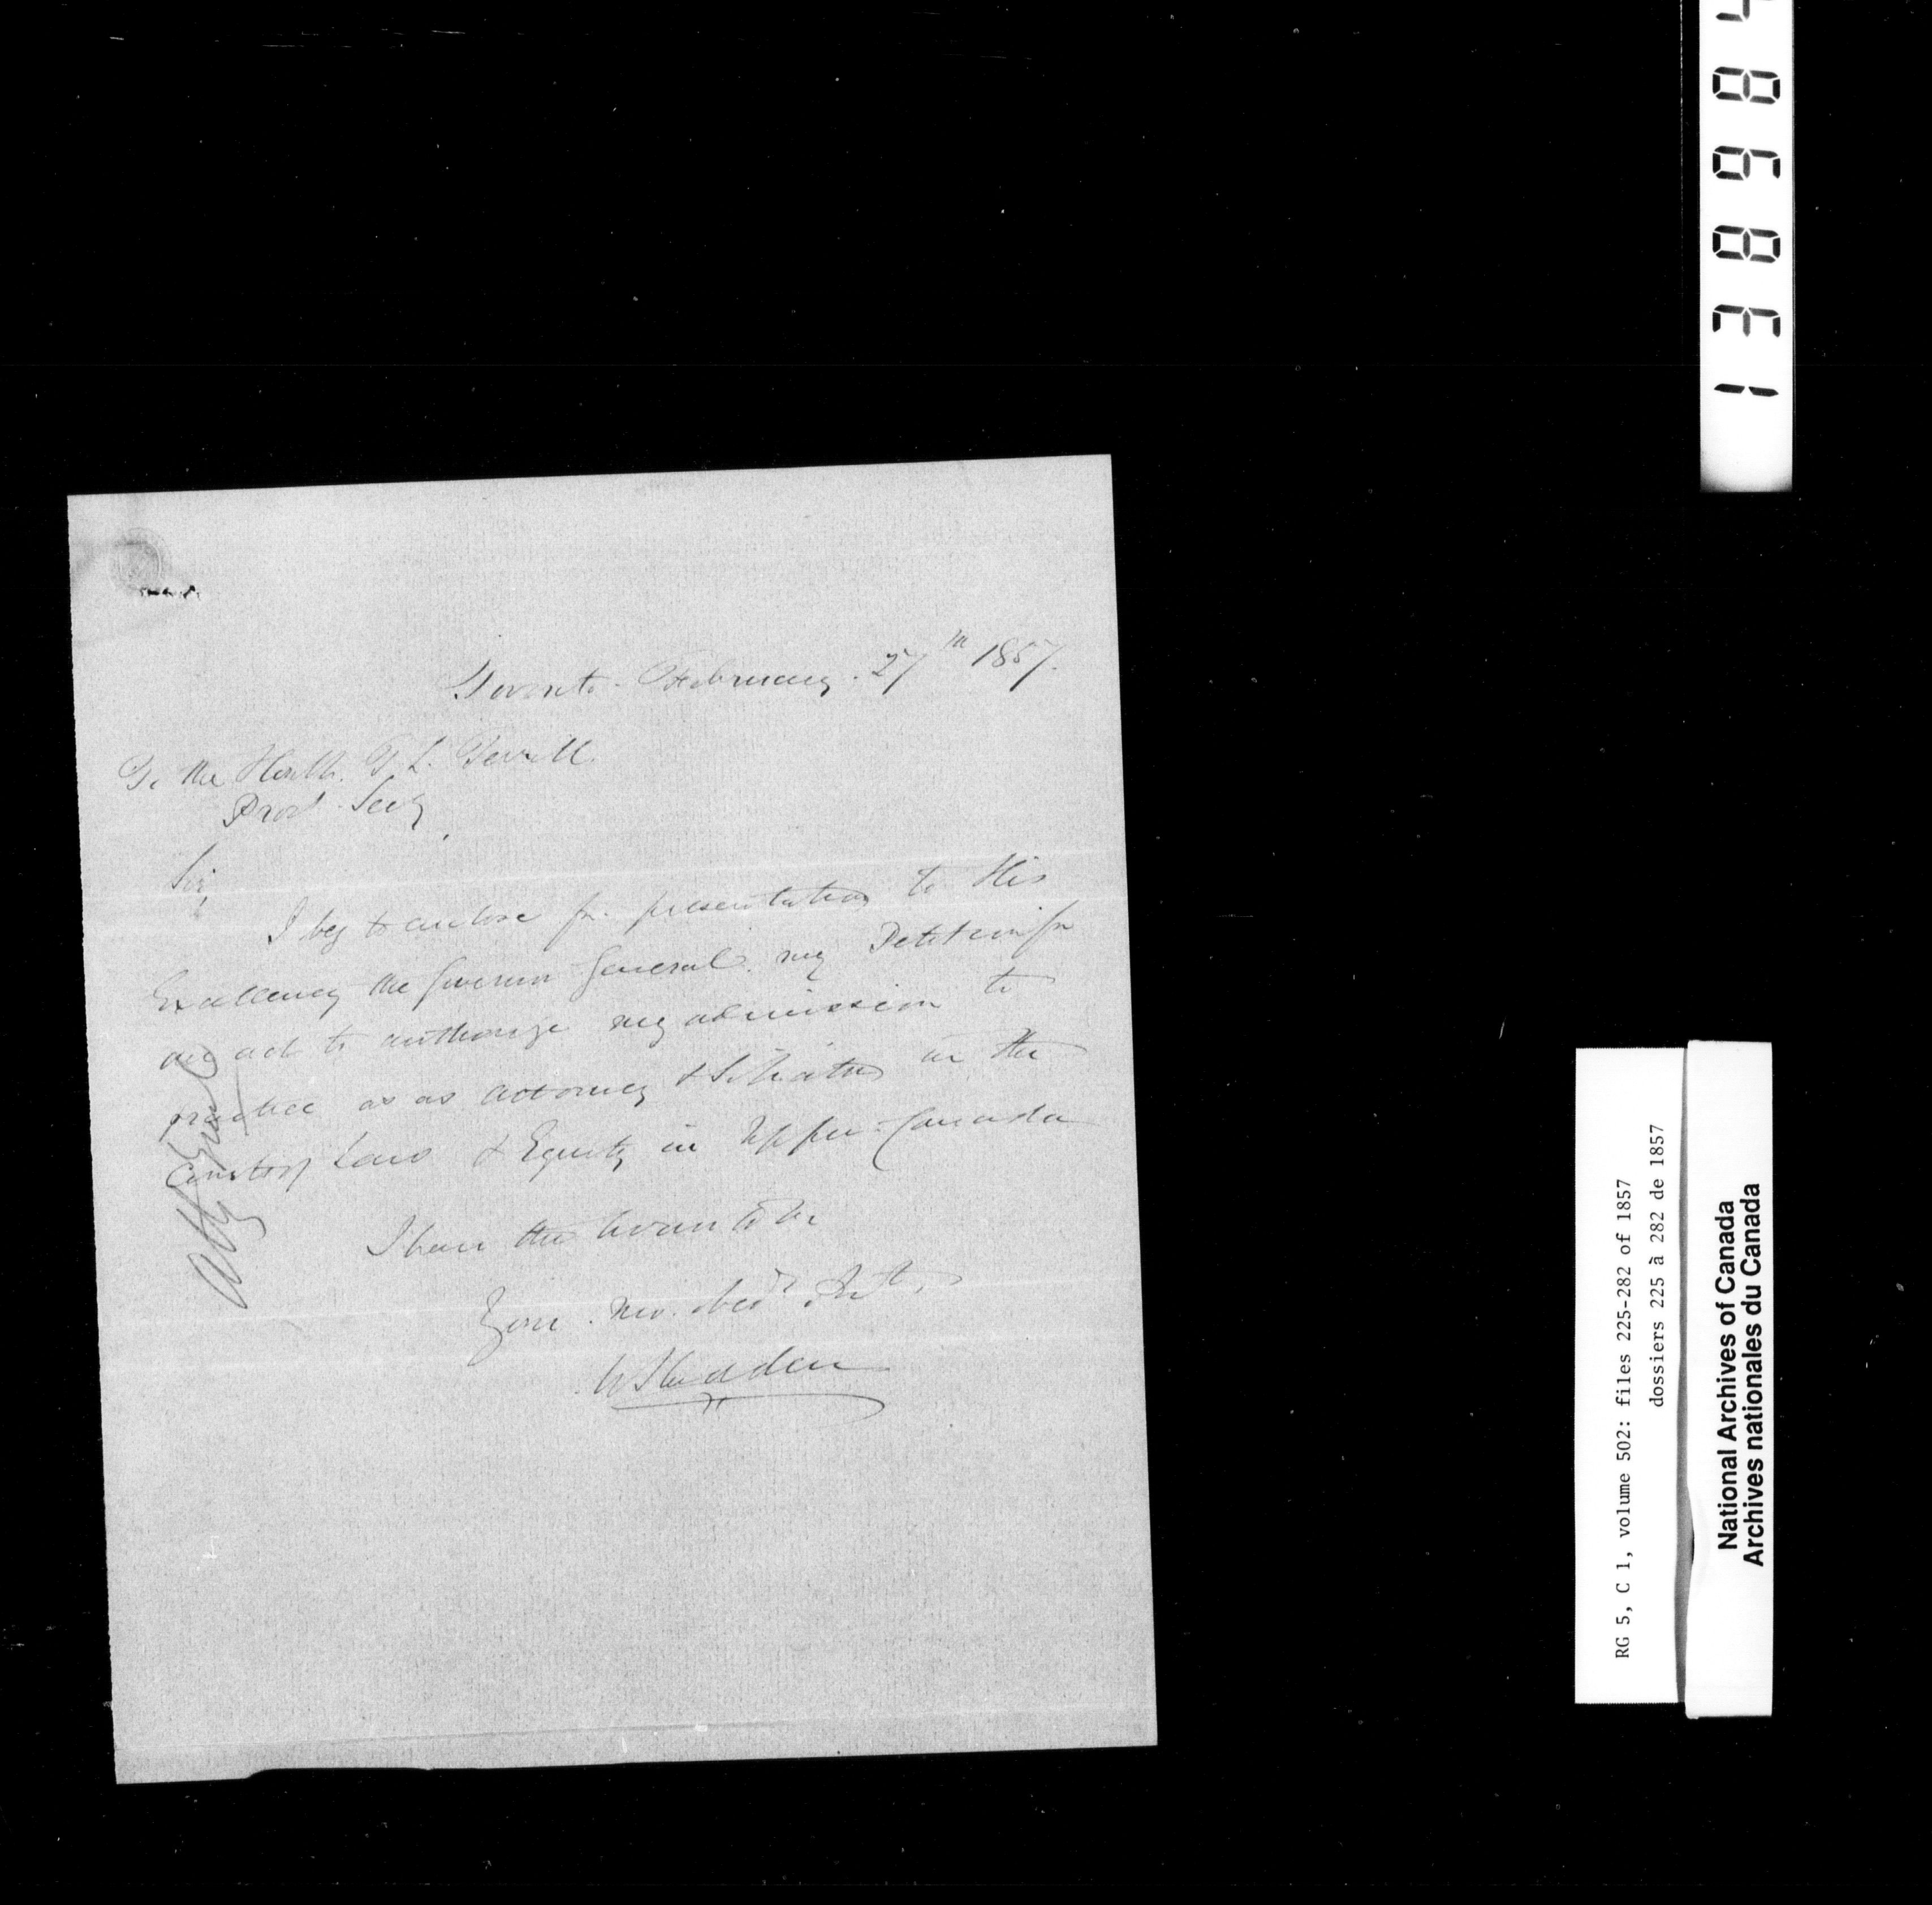 Toronto. February. 27th 1857.
To the Honble. T. L. Terrill
Provl Secy
Sir,
I beg to enclose for presentation to His
Excellency the Governor General. my Petition for
an act to authorize my admission to
practice as an attorney & Solicitor in the
Courts of Law & Equity in Upper-Canada
I have the honor to be
Your. mo. obedt. Svt.
Atty Genl
RG 5, C 1, volume 502: files 225-282 of 1857
dossiers 225 à 282 de 1857
National Archives of Canada
Archives nationales du Canada